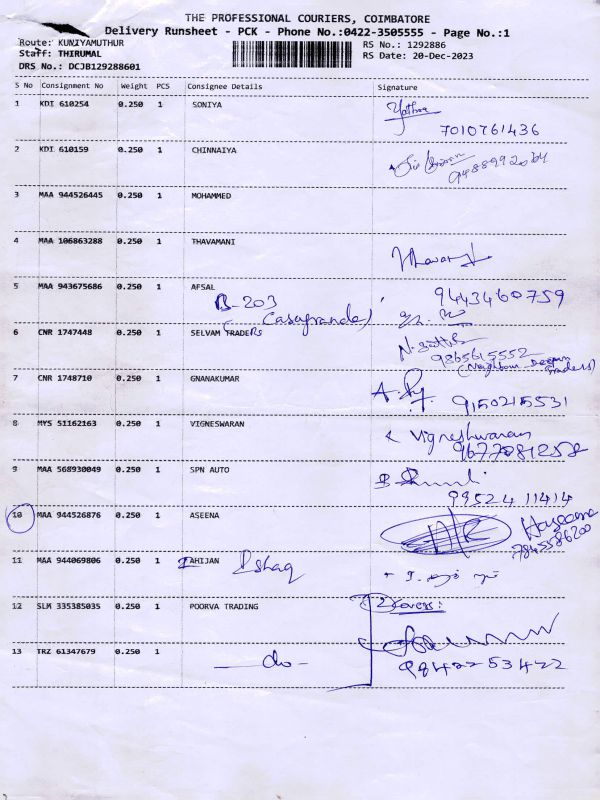 THE PROFESSIONAL COURIERS, COIMBATORE
Delivery Runsheet - PCK - Phone No.:0422-3505555 - Page No.:1
Route: KUNIYAMUTHUR
RS No.: 1292886
Staff: THIRUMAL
RS Date: 20-Dec-2023
DRS No.: DCJB129288601
S No Consignment No Weight PCS Consignee Details Signature
1 KDI 610254 0.250 1 SONIYA
7010761436
2 KDI 610159 0.250 1 CHINNAIYA
3 MAA 944526445 0.250 1 MOHAMMED
4 MAA 106863288 0.250 1 THAVAMANI
5 MAA 943675686 0.250 1 AFSAL
B-203 9443460759
Casagrande)
6 CNR 1747448 0.250 1 SELVAM TRADERS
9865615552
(Neighbour Deepam Traders)
7 CNR 1748710 0.250 1 GNANAKUMAR
9150215531
8 MYS 51162163 0.250 1 VIGNESWARAN
Vigneshwaran
9677081258
9 MAA 568930049 0.250 1 SPN AUTO
99524 11414
10 MAA 944526876 0.250 1 ASEENA
Haseena
7845586200
11 MAA 944069806 0.250 1 TAHIJAN Ishaq
12 SLM 335385035 0.250 1 POORVA TRADING
2 covers:
13 TRZ 61347679 0.250 1
-do-
9842253422